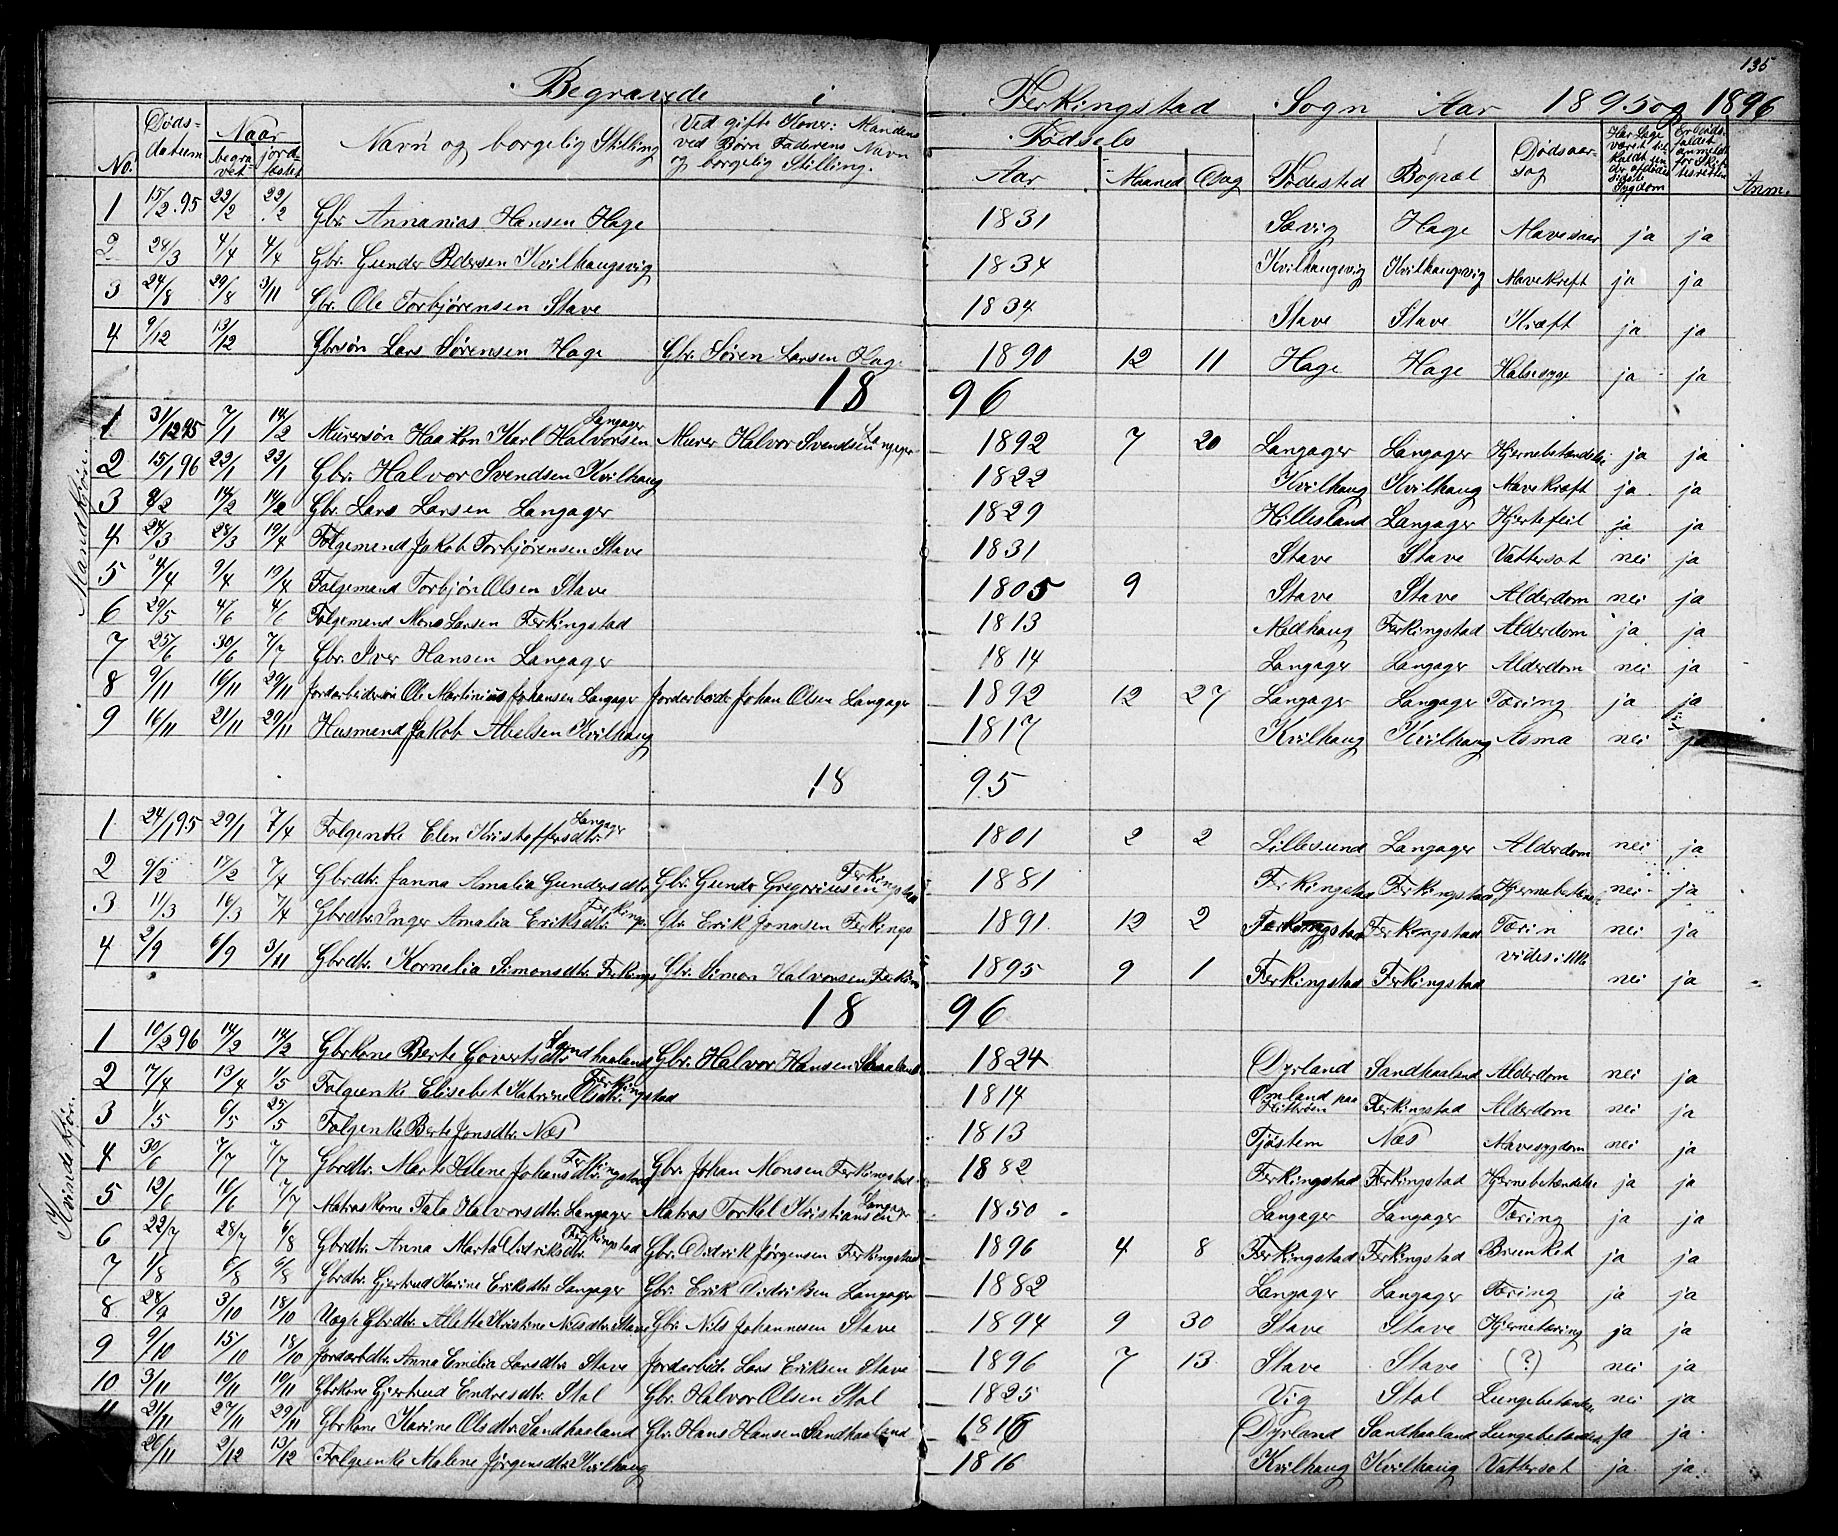 135
Begravede i Ferkingstad Sogn Aar 1895 og 1896
No. Døds-datum Naar begravet jordfæstet Navn og borgelig Stilling Ved gifte Koner: Mandens ved Børn Faderens Navn og borgelig Stilling. Fødsels Aar Maaned Dag Fødested Bopæl Dødsaarsag Har Læge været tilkaldt under afdødes sidste Sygdom Er Dødsfaldet anmeldt for Skifteretten Anm.
Mandkjøn
1 15/2.95 22/2 22/2 Gbr. Annanias Hansen Hage 1831 Sævig Hage Mavesaar ja ja
2 24/3 4/4 4/4 Gbr. Gunder Pedersen Kvilhaugsvig 1834 Kvilhaugsvig Kvilhaugsvig Mavekræft ja ja
3 24/8 29/8 3/11 Gbr. Ole Torbjørensen Stave 1834 Stave Stave Kræft ja ja
4 9/12 13/12 Gbrsøn Lars Sørensen Hage Gbr. Søren Larsen Hag. 1890 12 11 Hage Hage Halssyge ja ja
1896
1 31/12 95 7/1 14/2 Murersøn Haakon Karl Halvorsen Langager Murer Halvor Svendsen Langager 1892 7 20 Langager Langager Hjernebetændelse ja ja
2 15/1 96 22/1 22/1 Gbr. Halvor Svendsen Kvilhaug 1822 Kvilhaug Kvilhaug Mavekræft ja ja
3 8/2 14/2 14/2 Gbr. Lars Larsen Langager 1829 Hillesland Langager Hjertefeil ja ja
4 24/3 28/3 19/4 Følgemand Jakob Torbjørensen Stave 1831 Stave Stave Vattersot nei ja
5 4/4 9/4 19/4 Følgemand Torbjørn Olsen Stave 1805 9 Stave Stave Alderdom nei ja
6 29/5 4/6 4/6 Følgemand Mons Larsen Ferkingstad 1813 Medhaug Ferkingstad Alderdom ja ja
7 25/6 30/6 7/7 Gbr. Iver Hansen Langager 1814 Langager Langager Alderdom nei ja
8 9/11 16/11 29/11 Jordarbeidersøn Ole Martinius Johansen Langager Jordarbeidr. Johan Olsen Langager 1892 12 27 Langager Langager Tæring ja ja
9 16/11 21/11 29/11 Husmand Jakob Abelsen Kvilhaug 1817 Kvilhaug Kvilhaug Asma nei ja
1895
Kvindekjøn
1 24/1 95 29/1 7/4 Følgenke Elen Kristoffersdtr. Langager 1801 2 2 Lillesund Langager Alderdom nei ja
2 9/2 17/2 7/4 Gbrdtr. Janna Amalia Gundersdtr. Gbr. Gunder Gregoriusen Ferkingstad 1881 Ferkingstad Ferkingstad Hjernebetænd. nei ja
3 11/3 16/3 7/4 Gbrdtr. Inger Amalia Eriksdtr. Ferkings. Gbr. Erik Jonasen Ferkings 1891 12 2 Ferkingstad Ferkingstad Tærin nei ja
4 2/9 6/9 3/11 Gbrdtr. Kornelia Simonsdtr. Ferkings Gbr. Simon Halvorsen Ferkin 1895 9 1 Ferkingstad Ferkingstad vides ikke nei ja
1896
1 10/2 96 14/2 14/2 Gbrkone Berte Govertsdtr. Sandhaaland Gbr. Halvor Hansen Shaaland 1824 Dyrland Sandhaaland Alderdom nei ja
2 7/4 13/4 1/5 Følgenke Elisebet Katrine Olsdtr. Ferkingstad 1814 Omland paa Hitterøen Ferkingstad Alderdom nei ja
3 1/5 6/5 25/5 Følgenke Berte Jonsdtr. Næs 1813 Tjøstem Næs Mavesygdom nei ja
4 30/6 7/7 7/7 Gbrdtr. Marte Helene Johansdtr. Ferkingstad Gbr. Johan Monsen Ferkingstad 1882 Ferkingstad Ferkingstad Hjernebetændelse ja ja
5 12/6 16/6 7/7 Matroskone Tala Halvorsdtr. Langager Matros Torkel Kristiansen Langager 1850 Langager Langager Tæring ja ja
6 22/7 28/7 6/8 Gbrdtr. Anna Marta Didriksdtr. Ferkingstad Gbr. Didrik Jørgensen Ferkingstad 1896 4 8 Ferkingstad Ferkingstad Brunket ja ja
7 1/8 6/8 6/8 Gbrdtr. Gjertrud Karine Eriksdtr. Langager Gbr. Erik Didriksen Langager 1882 Langager Langager Tæring ja ja
8 28/9 3/10 18/10 Uægte Gbrdtr. Alette Kristine Nilsdtr. Stave Gbr. Nils Johannesen Stave 1894 9 30 Stave Stave Hjernetæring ja ja
9 9/10 15/10 18/10 Jordarbdtr. Anna Emilia Larsdtr. Stave Jordarbeidr. Lars Eriksen Stave 1896 7 13 Stave Stave (?) nei ja
10 3/11 10/11 10/11 Gbrkone Gjertrud Endresdtr. Stol Gbr. Halvor Olsen Stol 1825 Vig Stol Lungebetændse nei ja
11 21/11 27/11 29/11 Gbrkone Karine Olsdtr. Sandhaaland Gbr. Hans Hansen Sandhaaland 1816 Dyrland Sandhaaland Lungebetændels ja ja
26/11 2/12 13/12 Følgenke Malene Jørgensdtr. Kvilhaug 1816 Kvilhaug Kvilhaug Vattersot ja ja